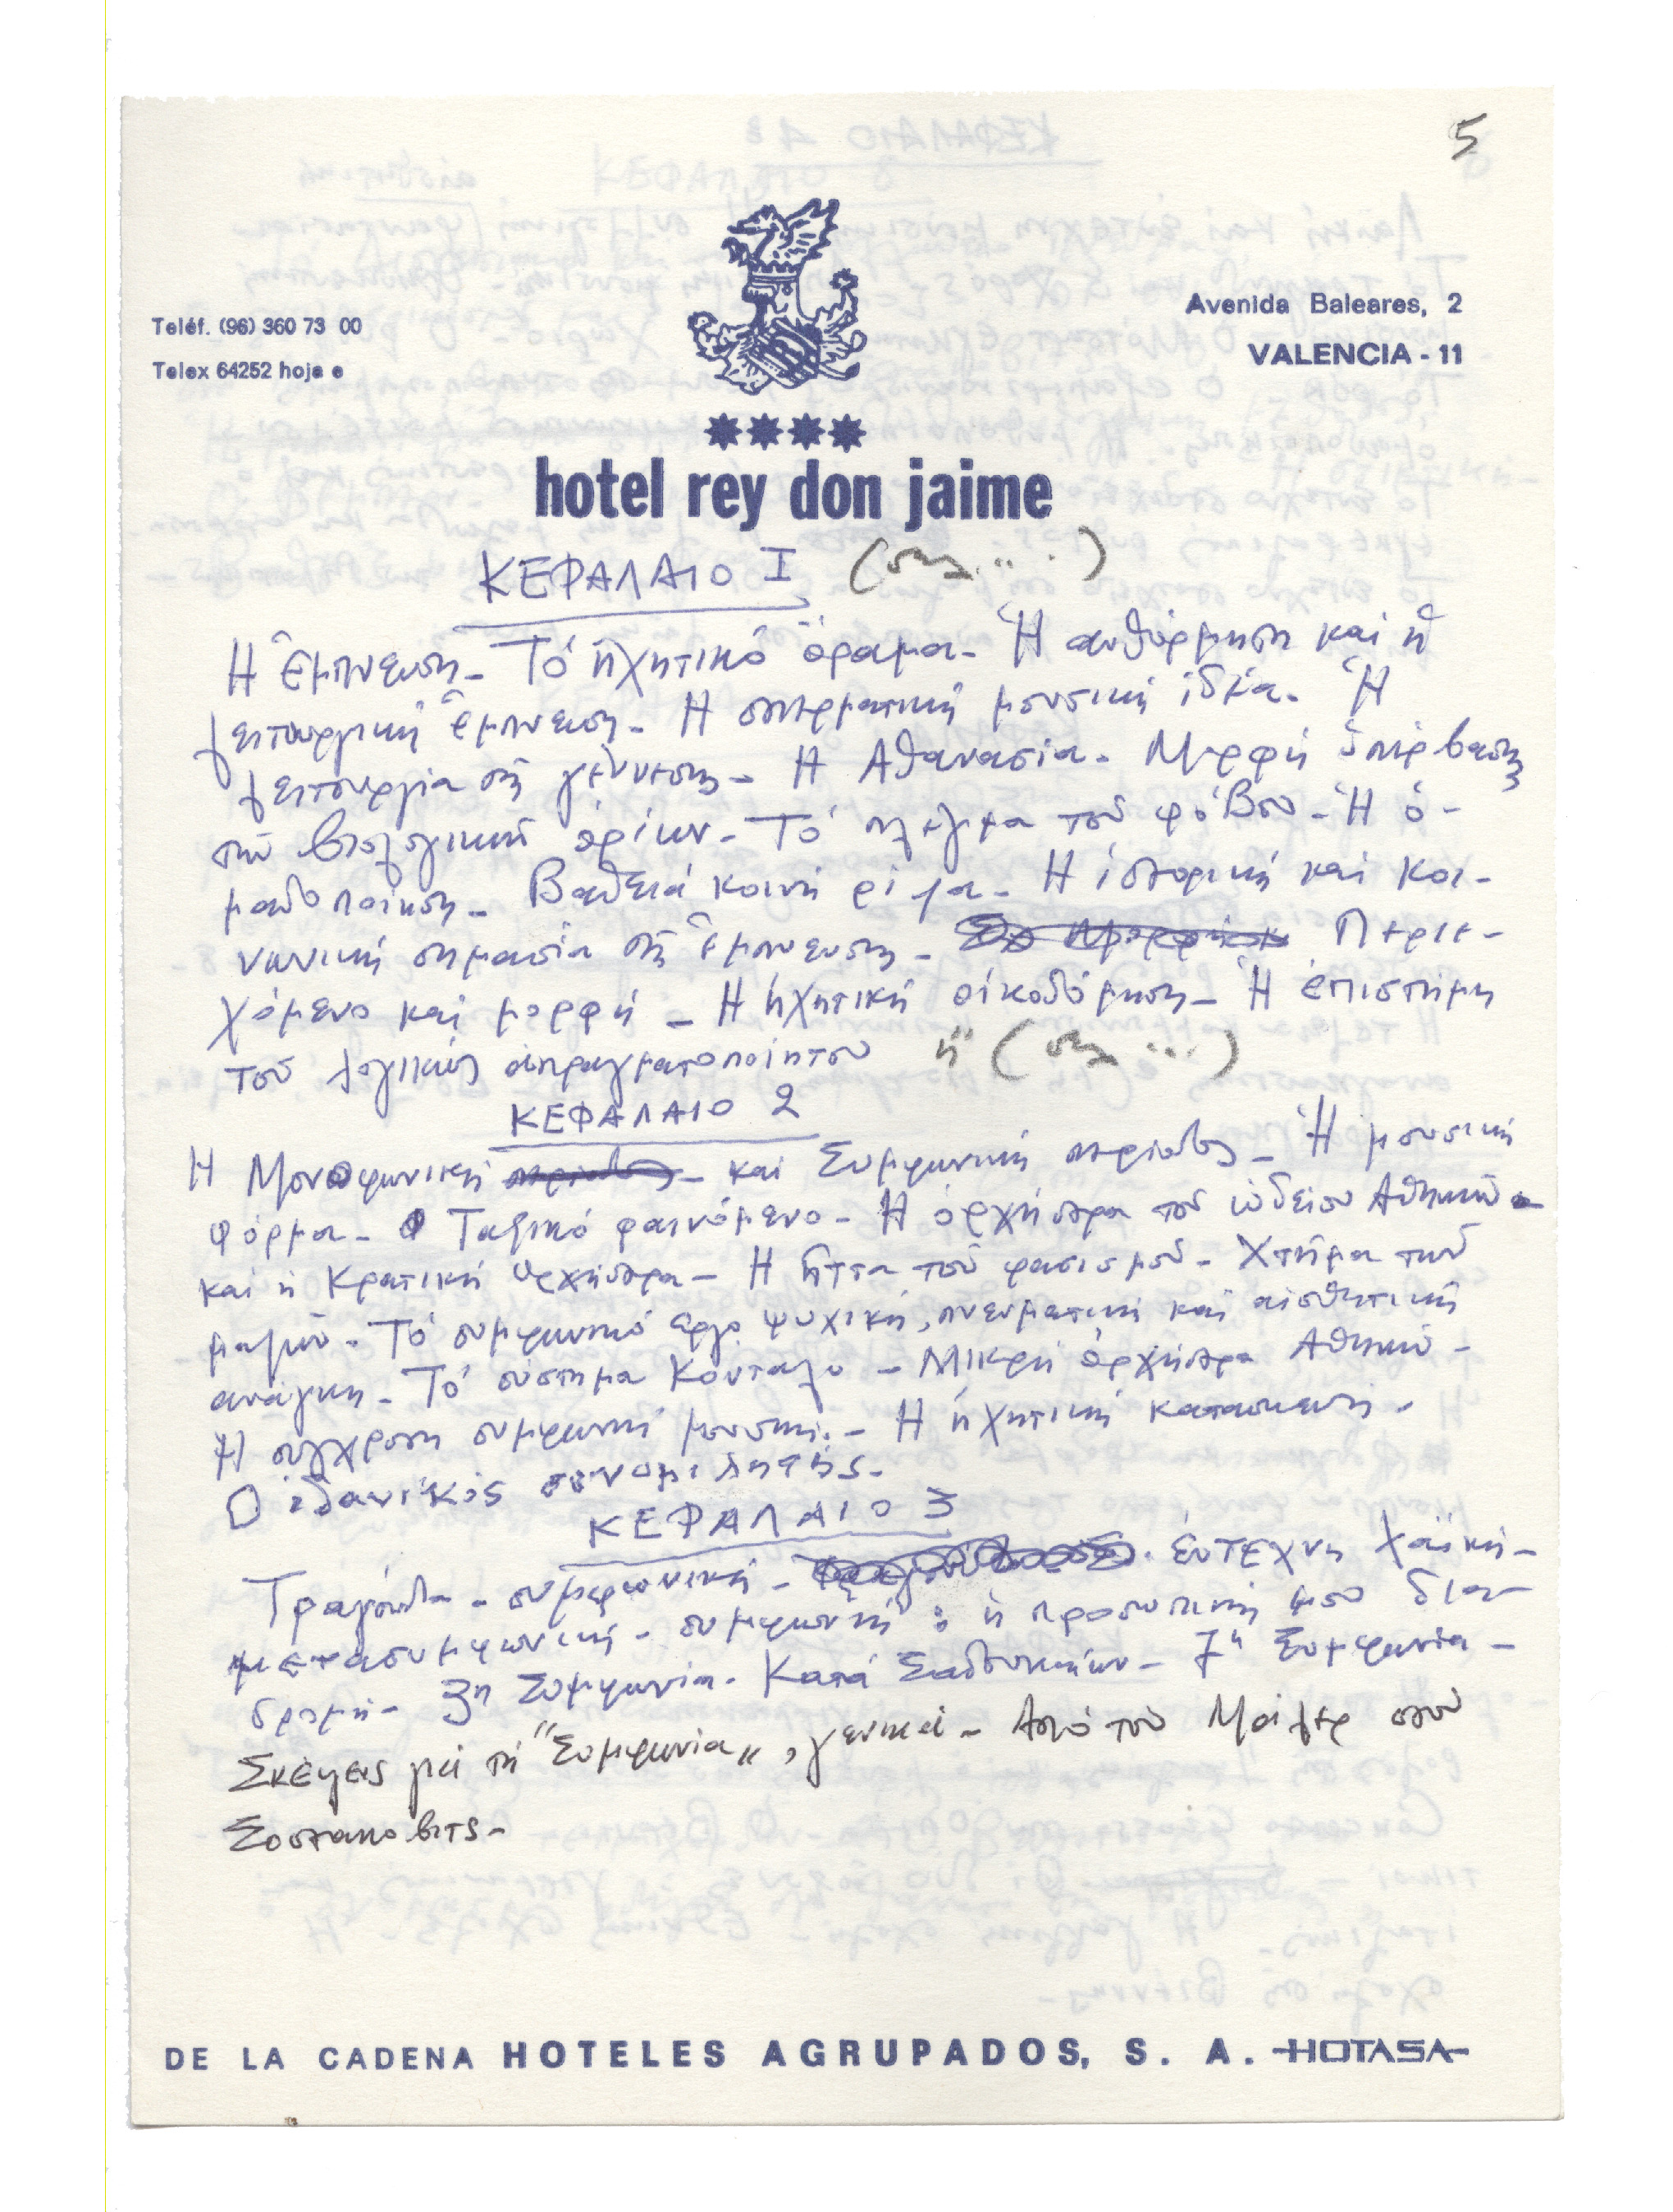 5
Teléf. (96) 360 73 00
Telex 64252 hoja e
Avenida Baleares, 2
VALENCIA - 11
hotel rey don jaime
ΚΕΦΑΛΑΙΟ I (σελ....)
Η ἔμπνευση - Τό ἠχητικό ὅραμα - Ἡ αυθόρμηση καί ἡ
λειτουργική ἔμπνευση - Η σπερματική μουσική ἰδέα - Ἡ
λειτουργία τῆς γέννησης - Η Αθανασία - Μορφή ὑπέρβασης
τῶν βιολογικῶν ὁρίων - Τό πλέγμα τοῦ φόβου - Ἡ ὁ-
μαδοποίηση - Βαθειά κοινή ρίζα - Ἡ ἱστορική καί κοι-
νωνική σημασία τῆς ἔμπνευσης - Περιε-
χόμενο καί μορφή - Ἡ ἠχητική οἰκοδόμηση - Ἡ ἐπιστήμη
τοῦ λογικῶς ἀπραγματοποίητου ἤ (σελ ...)
ΚΕΦΑΛΑΙΟ 2
Η Μονοφωνική και Συμφωνική περίοδος - Ἡ μουσική
φόρμα - Ταξικό φαινόμενο - Ἡ ὀρχήστρα τοῦ ὠδείου Αθηνῶν
καί ἡ Κρατική Ορχήστρα - Η ἧττα τοῦ φασισμοῦ - Χτῆμα τῶν
μαζῶν - Τό συμφωνικό ἔργο ψυχική, πνευματική καί αἰσθητική
ανάγκη - Τό σύστημα Κόνταλυ - Μικρή ὀρχήστρα Αθηνῶν -
Ἡ σύγχρονη συμφωνική μουσική - Η ἠχητική κατασκευή -
Ὁ ἰδανικός συνομιλητής -
ΚΕΦΑΛΑΙΟ 3
Τραγούδι - συμφωνική - ἔντεχνη λαϊκή -
μετασυμφωνική - συμφωνική : ἡ προσωπική μου δια-
δρομή - 3η Συμφωνία - Κατά Σαδδουκαίων - 7η Συμφωνία -
Σκέψεις γιά τή "Συμφωνία", γενικά - Από τόν Μάλερ στόν
Σοστακοβιτς -
DE LA CADENA HOTELES AGRUPADOS, S. A. -HOTASA-